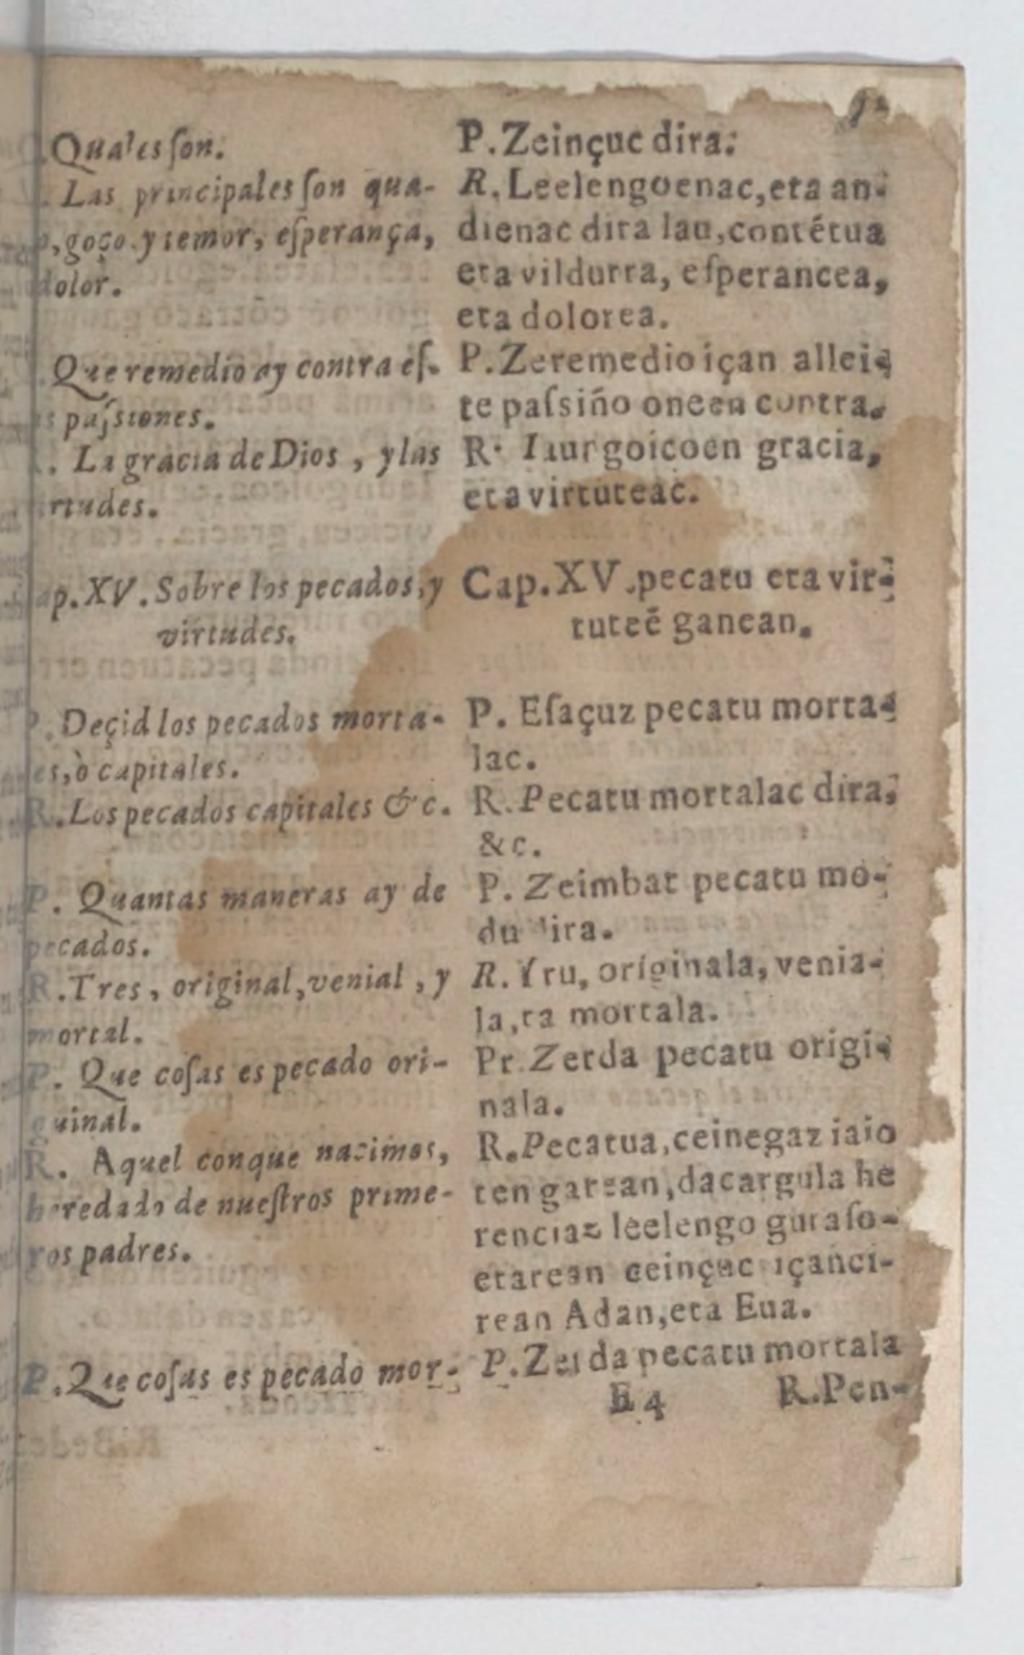 Quales son.
Las principales son qua-
goço y temor, esperança,
dolor.
Que remedio ay contra es-
passiones.
La gracia de Dios, y las
rtudes.
ap. XV. Sobre los pecados, y
virtudes.
P. Deçid los pecados morta-
es, ò capitales.
R. Los pecados capitales &c.
P. Quantas maneras ay de
pecados.
R. Tres, original, venial, y
mortal.
P. Que cosas es pecado ori-
guinal.
R. Aquel conque nazimos,
heredado de nuestros prime-
ros padres.
P. Que cosas es pecado mor-
P. Zeinçuc dira:
R. Leelengoenac, eta an-
dienac dira lau, contētua
eta vildurra, esperancea,
eta dolorea.
P. Zeremedio içan allei-
te passiño oneen contra.
R. Iaungoicoen gracia,
eta virtuteac.
Cap. XV. pecatu eta vir-
tuteē ganean.
P. Esaçuz pecatu morta-
lac.
R. Pecatu mortalac dira,
&c.
P. Zeimbat pecatu mo-
du dira.
R. Yru, originala, venia-
la, ta mortala.
Pr. Zerda pecatu origi-
nala.
R. Pecatua, ceinegaz iaio
ten garean, dacargula he
renciaz leelengo guraso-
etarean ceinçuc içanci-
rean Adan, eta Eua.
P. Zerda pecatu mortala
E 4 R. Pen-